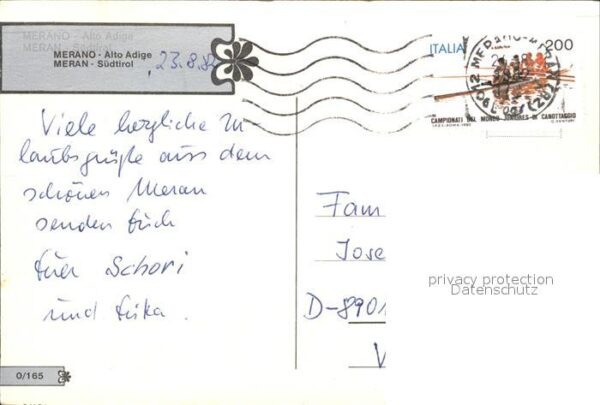 MERANO - Alto Adige
MERAN - Südtirol
23.8.82
ITALIA
200
CAMPIONATI DEL MONDO JUNIORES DI CANOTTAGGIO
Viele herzliche Ur-
laubsgrüße aus dem
schönen Meran
senden Euch
Euer Schori
und Erika.
Fam
Jose
D-8901
privacy protection
Datenschutz
0/165